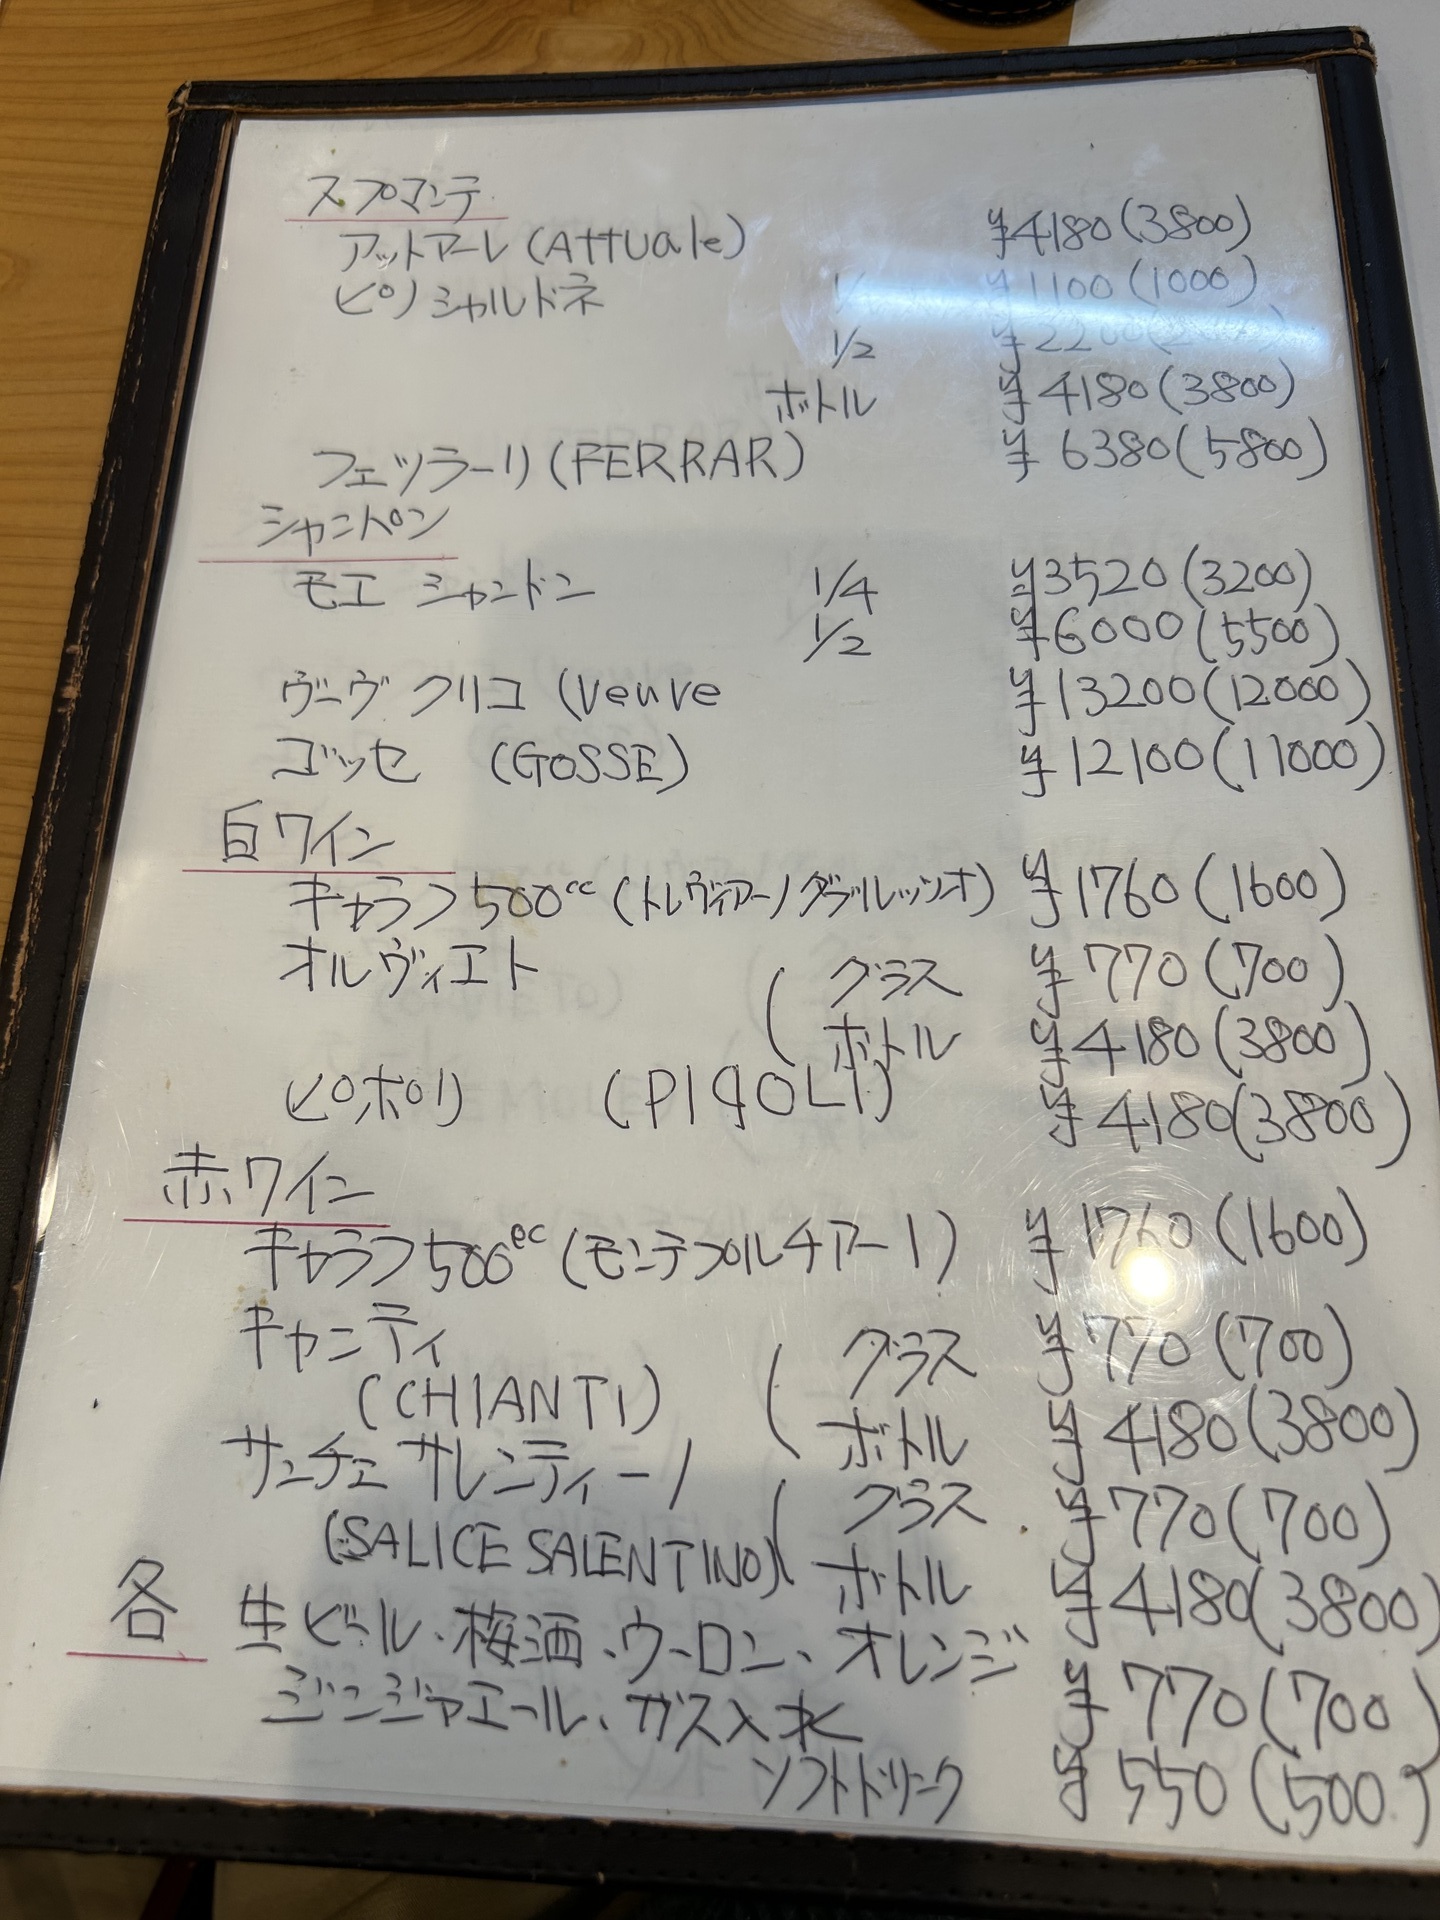 スプマンテ
アットアーレ(Attuale) ¥4180(3800)
ピノ シャルドネ ¥1100(1000)
1/2 ¥2200
ボトル ¥4180(3800)
フェッラーリ(FERRAR) ¥6380(5800)
シャンパン
モエ シャンドン 1/4 ¥3520(3200)
1/2 ¥6000(5500)
ヴーヴ クリコ (Veuve ¥13200(12000)
ゴッセ (GOSSE) ¥12100(11000)
白ワイン
キャラフ500cc(トレヴィアーノダブルッツオ) ¥1760(1600)
オルヴィエト (グラス ¥770(700)
ボトル ¥4180(3800)
ピポリ (PIqOLI) ¥4180(3800)
赤ワイン
キャラフ500cc(モンテプルチアーノ) ¥1760(1600)
キャンティ (グラス ¥770(700)
(CHIANTI) ボトル ¥4180(3800)
サンチェ サレンティーノ (グラス ¥770(700)
(SALICE SALENTINO) ボトル ¥4180(3800)
各 生ビール、梅酒、ウーロン、オレンジ
ジンジャエール、ガス入水 ¥770(700)
ソフトドリンク ¥550(500)